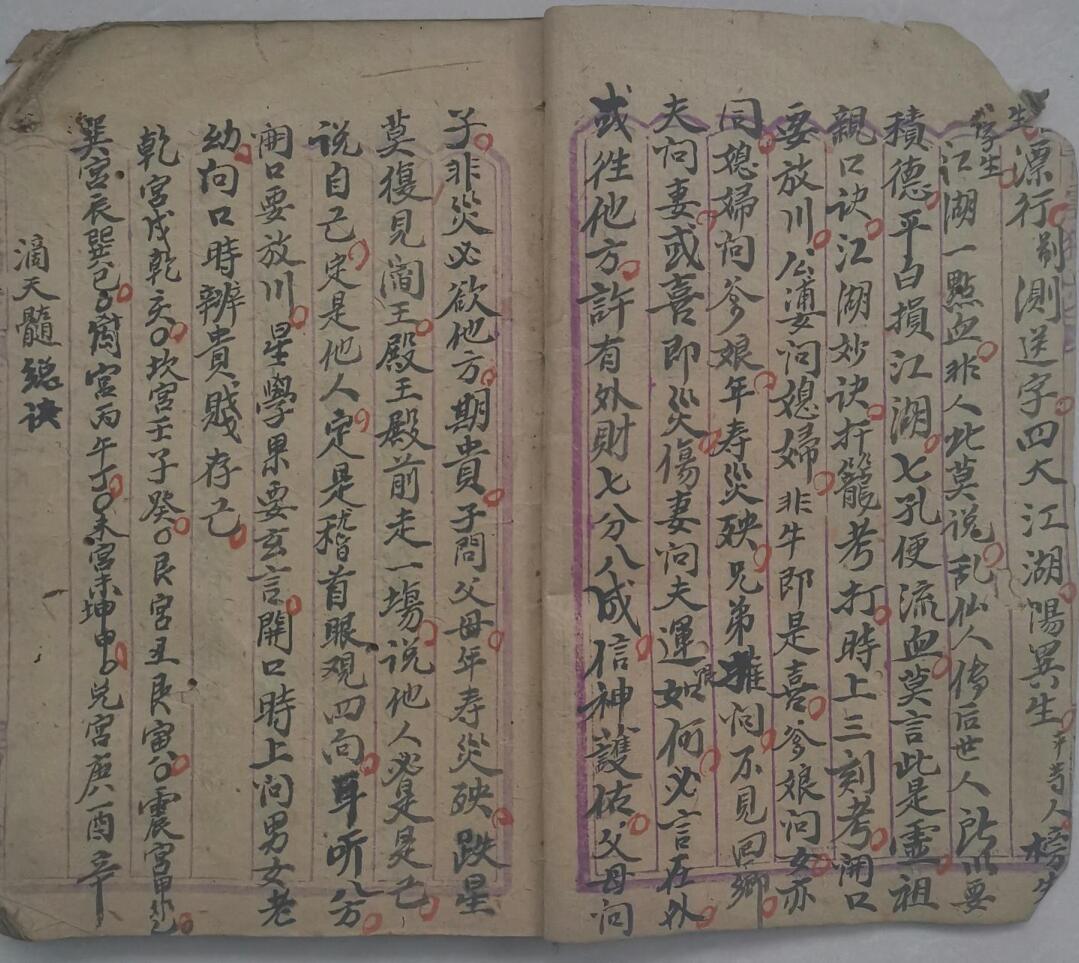 生漂行制測送字四大江湖陽異生才等人榜生
字生
江湖一點血非人此莫说乱仙人传后世人所以要
積德平白損江湖七孔便流血莫言此是虛祖
親口诀江湖妙诀扦籠考打時上三刻考開口
要放川公婆问媳婦非牛即是喜爹娘问女亦
同媳婦问爹娘年寿災殃兄弟问不見回鄉
夫问妻或喜即災傷妻问夫運如何必言在外
或往他方許有外財七分八成信神護佑父母问
子非災必欲他方期貴子問父母年寿災殃跌星
莫復見阎王殿王殿前走一塲说他人必是是己
说自己定是他人定是稽首眼观四向耳听八方
開口要放川星學果要玄言開口時上问男女老
幼向口時辨貴賤存己
乾宫戌乾亥坎宫壬子癸艮宫丑艮寅震宫甲卯乙
巽宫辰巽巳离宫丙午丁未宫未坤申兑宫庚酉辛
滴天髓總诀